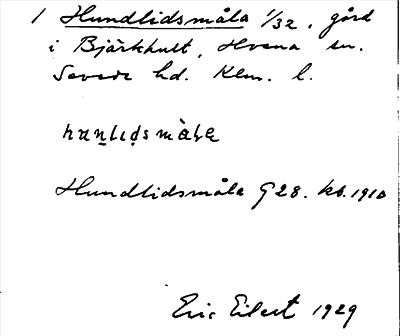 1 Hundlidsmåla 1/32, gård
i Björkhult, Hvena sn.
Sevede hd. Klm. l.
Hundlidsmåla G 28. kb. 1910
Eric Eilert 1929